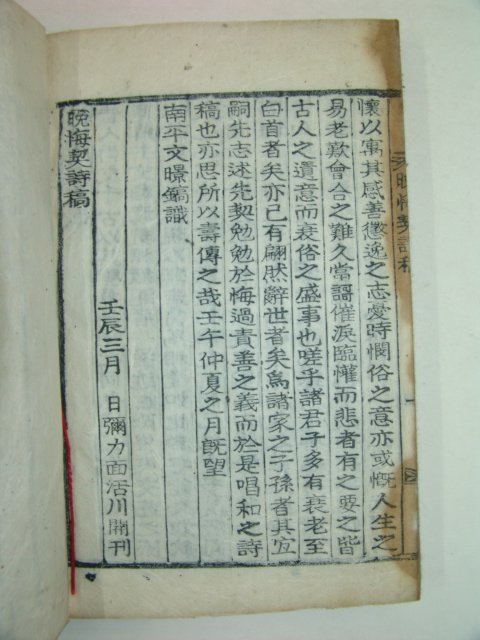 晚悔契詩稿
懷以寓其感善懲逸之志憂時憫俗之意亦或慨人生之
易老歎會合之難久當謌催淚臨懽而悲者有之要之皆
古人之遺意而衰俗之盛事也嗟乎諸君子多有衰老至
白首者矣亦已有翩然辭世者矣爲諸家之子孫者其宜
嗣先志述先契勉勉於悔過責善之義而於是唱和之詩
稿也亦思所以壽傳之哉壬午仲夏之月旣望
南平文暻鎬識
壬辰三月 日彌力面活川開刊
晚悔契詩稿